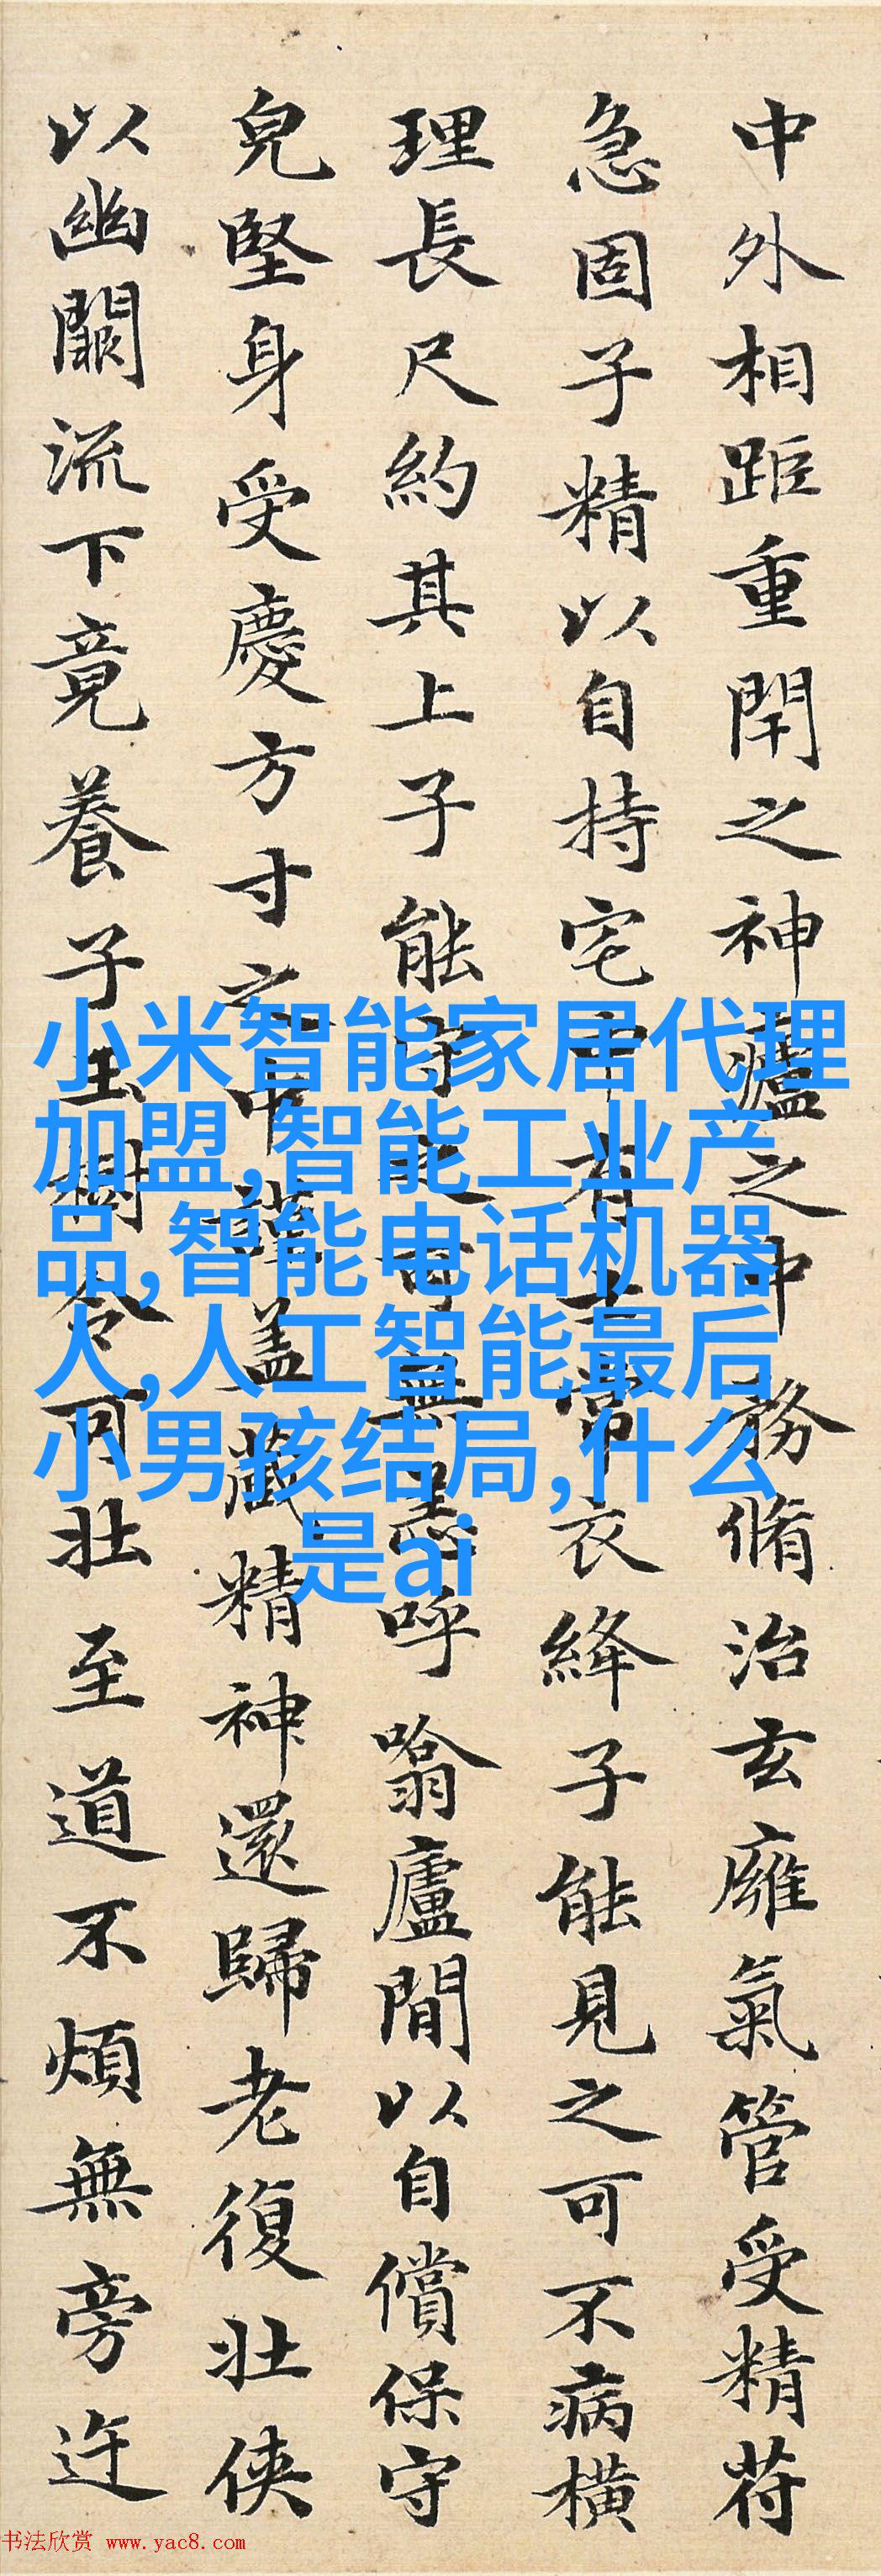 中外相距重閇之神廬之中務脩治玄廱氣管受精苻
急固子精以自持宅中有士常衣絳子能見之可不病橫
理長尺約其上子能守之可無恙呼噏廬閒以自償保守
皃堅身受慶方寸之中謹盖藏精神還歸老復壯俠
以幽闕流下竟養子玉樹令可壯至道不煩無旁迕
小米智能家居代理
加盟,智能工业产
品,智能电话机器
人,人工智能最后
小男孩结局,什么
是ai
书法欣赏 www.yac8.com